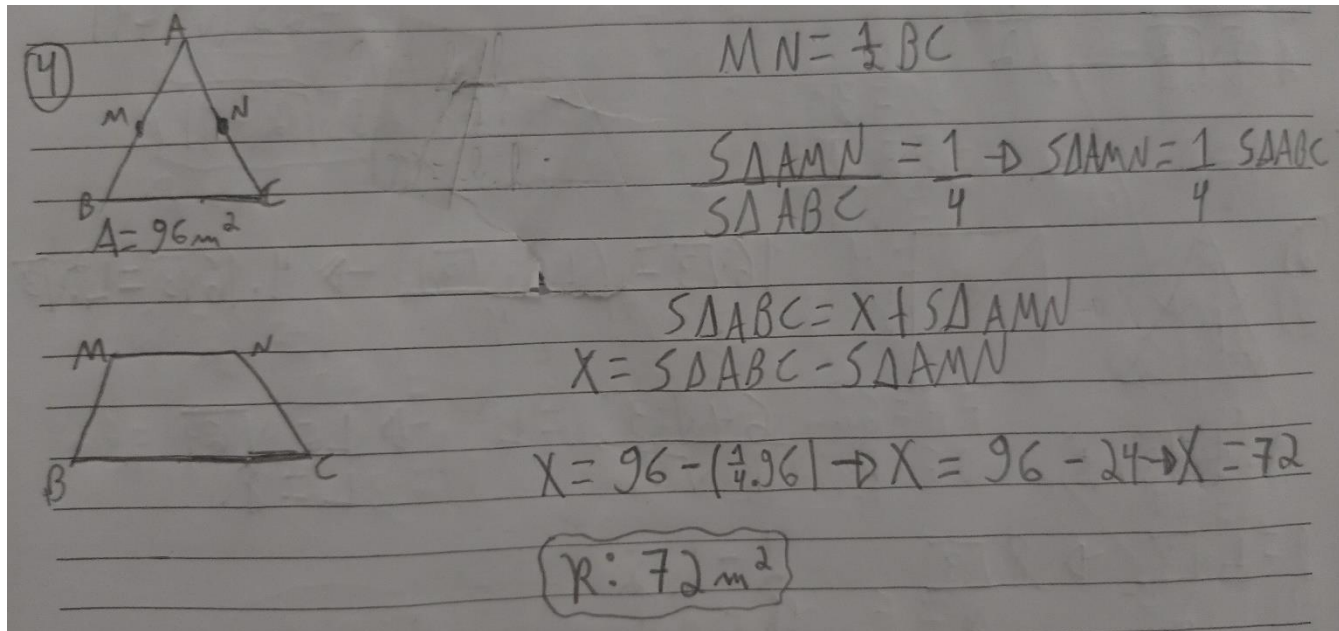 4
A
M N
B C
A = 96m²
MN = 1/2 BC
SΔAMN/SΔABC = 1/4 → SΔAMN = 1/4 SΔABC
SΔABC = X + SΔAMN
X = SΔABC - SΔAMN
M N
B C
X = 96 - (1/4.96) → X = 96 - 24 → X = 72
R: 72m²